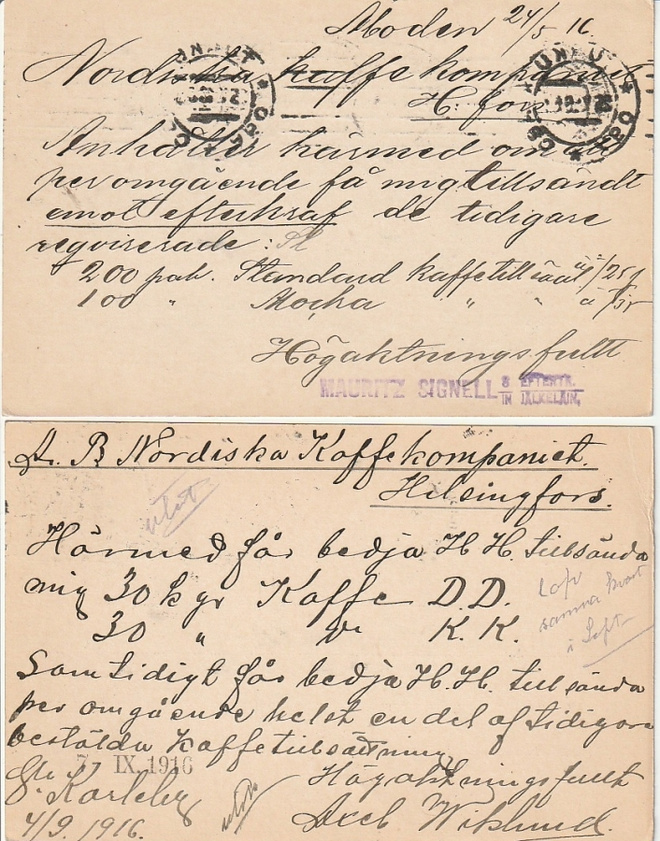 Moden 24/5 16.
Nordiska kaffe kompaniet
H. fors
Anhåller härmed om att
per omgående få mig tillsändt
emot efterkraf de tidigare
reqvirerade:
200 pak. Standard kaffetillsats
100 " Mocha " "
Högaktningsfullt
MAURITZ SIGNELL S EFTERTR.
A. B Nordiska Kaffekompaniet.
Helsingfors.
Härmed får bedja H. H. tillsända
mig 30 kgr Kaffe D.D.
30 " K. K.
Samtidigt får bedja H. H. tillsända
per omgående helst en del af tidigare
bestälda Kaffetillsättning
7 IX. 1916
Gl. Karleby
Högaktningsfullt
4/9. 1916.
Axel Wiklund.